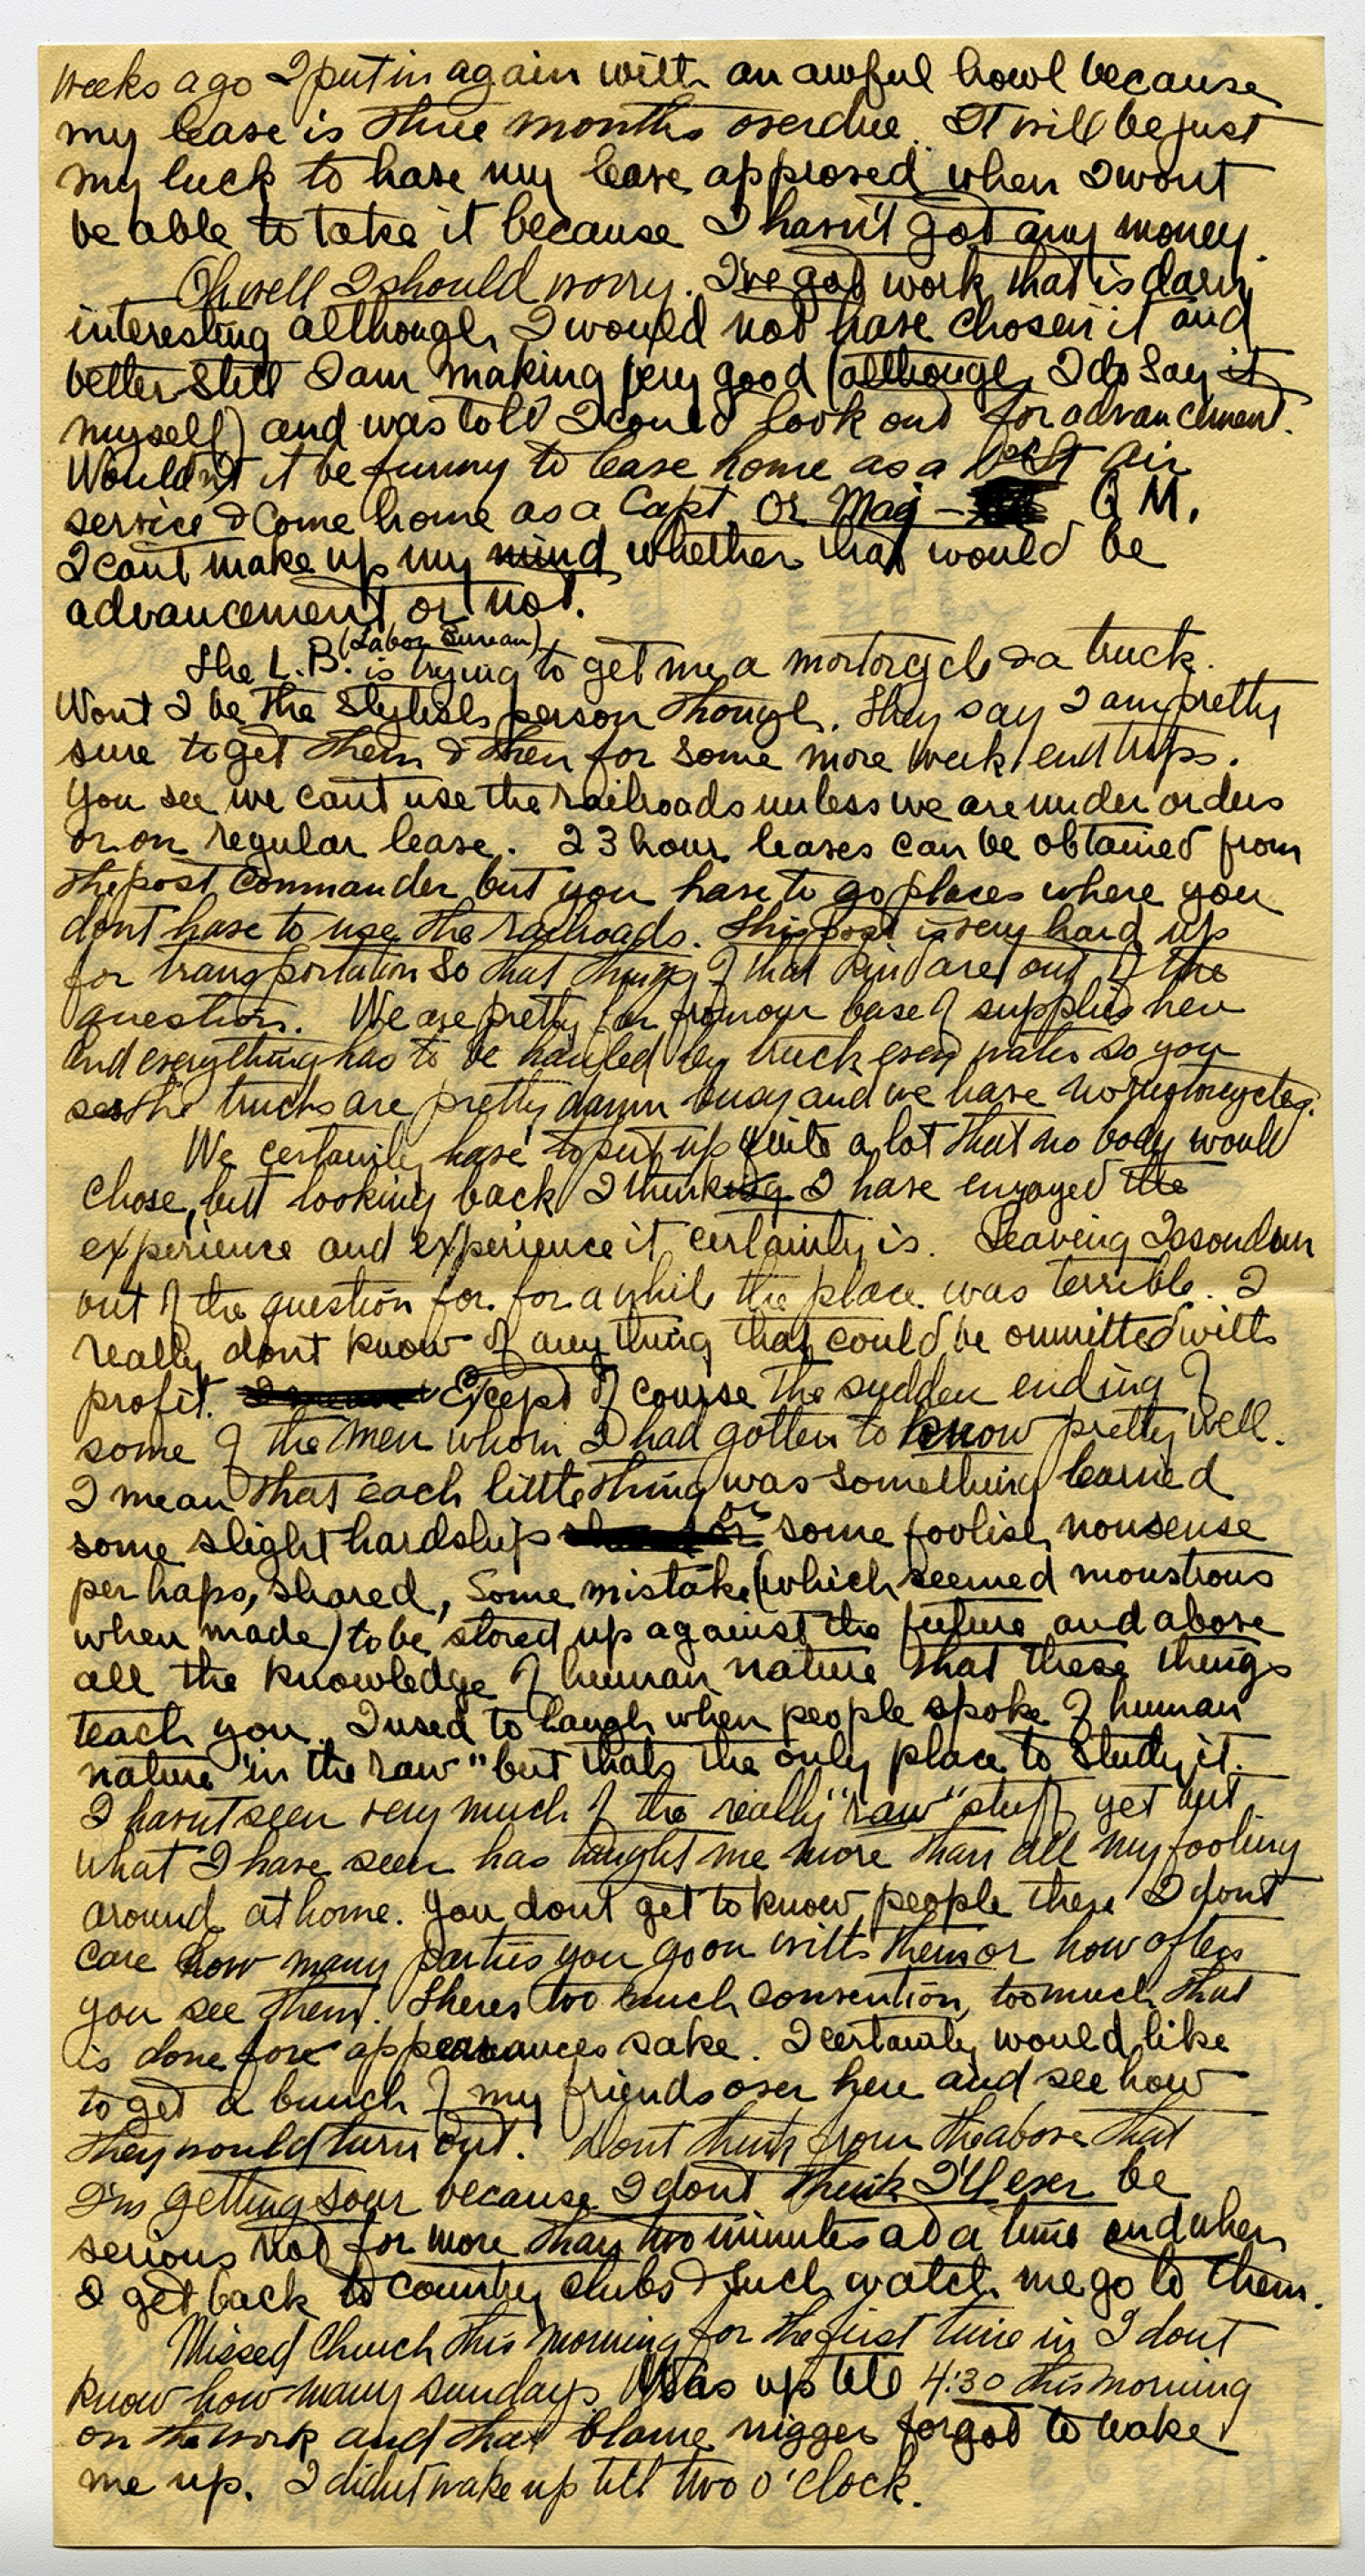 weeks ago I put in again with an awful howl because
my leave is three months overdue. It will be just
my luck to have my leave approved when I wont
be able to take it because I hasn't got any money.
Oh well I should worry. I've got work that is darn
interesting although I would not have chosen it and
better still I am making very good (although I do say it
myself) and was told I could look out for advancement.
Wouldn't it be funny to leave home as a 1st Lt air
service & come home as a Capt. or Maj - Q M.
I can't make up my mind whether that would be
advancement or not.
The L. B. (Labor Bureau) is trying to get me a mortorcycle & a truck.
Wont I be the stylish person though. They say I am pretty
sure to get them & then for some more week end trips.
You see we cant use the railroads unless we are under orders
or on regular leave. 23 hour leaves can be obtained from
the post commander but you have to go places where you
dont have to use the railroads. This post is very hard up
for transportation so that things of that kind are out of the
question. We are pretty far from our base of supplies here
and everything has to be hauled by truck even water so you
see the trucks are pretty damn busy and we have no motorcycles.
We certainly have to put up quite a lot that no body would
chose, but looking back I think I have enjoyed the
experience and experience it certainly is. Leaving Issoudun
out of the question for for a while the place was terrible. I
really dont know of any thing that could be ommitted with
profit. Except of course the sudden ending of
some of the men whom I had gotten to know pretty well.
I mean that each little thing was something learned
some slight hardship or some foolish nonsense
perhaps, shared, some mistake (which seemed monstrous
when made) to be stored up against the future and above
all the knowledge of human nature that these things
teach you. I used to laugh when people spoke of human
nature "in the raw" but thats the only place to study it.
I havnt seen very much of the really "raw" stuff yet but
what I have seen has taught me more than all my fooling
around at home. You dont get to know people there I dont
care how many parties you go on with them or how often
you see them. Theres too much convention, too much that
is done for appearances sake. I certainly would like
to get a bunch of my friends over here and see how
they would turn out. Dont think from the above that
I'm getting sour because I dont think I'll ever be
serious not for more than two minutes at a time and when
I get back to country clubs & such watch me go to them.
Missed Church this morning for the first time in I dont
know how many sundays. Was up till 4:30 this morning
on the work and that blame nigger forgot to wake
me up. I didnt wake up till two o'clock.